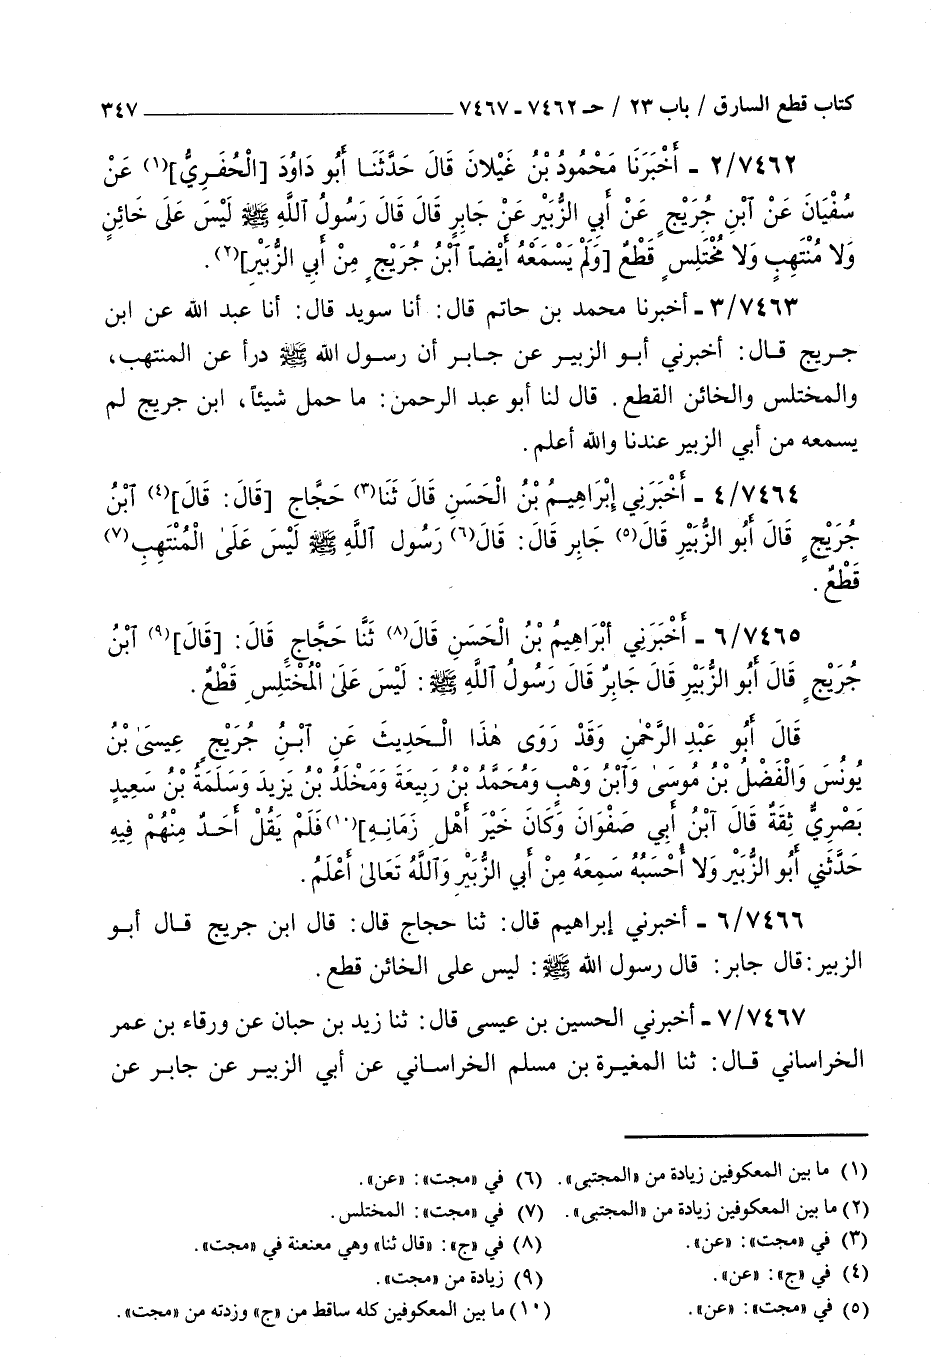 كتاب قطع السارق / باب ٢٣ / حـ ٧٤٦٢ - ٧٤٦٧ ٣٤٧
٢/٧٤٦٢ - أَخْبَرَنَا مَحْمُودُ بْنُ غَيْلانَ قَالَ حَدَّثَنَا أَبُو دَاوُدَ [الْحُفَرِيُّ](١) عَنْ
سُفْيَانَ عَنْ ٱبْنِ جُرَيْجٍ عَنْ أَبِي الزُّبَيْرِ عَنْ جَابِرٍ قَالَ قَالَ رَسُولُ ٱللَّهِ ﷺ لَيْسَ عَلَى خَائِنٍ
وَلا مُنْتَهِبٍ وَلا مُخْتَلِسٍ قَطْعٌ [وَلَمْ يَسْمَعْهُ أَيْضاً ٱبْنُ جُرَيْجٍ مِنْ أَبِي الزُّبَيْرِ](٢).
٣/٧٤٦٣ - أخبرنا محمد بن حاتم قال: أنا سويد قال: أنا عبد الله عن ابن
جريج قال: أخبرني أبو الزبير عن جابر أن رسول الله ﷺ درأ عن المنتهب،
والمختلس والخائن القطع. قال لنا أبو عبد الرحمن: ما حمل شيئاً، ابن جريج لم
يسمعه من أبي الزبير عندنا والله أعلم.
٤/٧٤٦٤ - أَخْبَرَنِي إِبْرَاهِيمُ بْنُ الْحَسَنِ قَالَ ثَنَا(٣) حَجَّاج [قَالَ: قَالَ](٤) ٱبْنُ
جُرَيْجٍ قَالَ أَبُو الزُّبَيْرِ قَالَ(٥) جَابِر قَالَ: قَالَ(٦) رَسُول ٱللَّهِ ﷺ لَيْسَ عَلَىٰ الْمُنْتَهِبِ(٧)
قَطْعٌ.
٦/٧٤٦٥ - أَخْبَرَنِي أبْرَاهِيمُ بْنُ الْحَسَنِ قَالَ(٨) ثَنَّا حَجَّاجٍ قَالَ: [قَالَ](٩) ٱبْنُ
جُرَيْجٍ قَالَ أَبُو الزُّبَيْرِ قَالَ جَابِرٌ قَالَ رَسُولُ ٱللَّهِ ﷺ: لَيْسَ عَلَىٰ الْمُخْتَلِسِ قَطْعٌ.
قَالَ أَبُو عَبْدِ الرَّحْمٰنِ وَقَدْ رَوَى هٰذَا الْحَدِيثَ عَنِ ٱبْنِ جُرَيْجٍ عِيسَىٰ بْنُ
يُونُسَ وَالْفَضْلُ بْنُ مُوسَىٰ وَٱبْنُ وَهْبٍ وَمُحَمَّدُ بْنُ رَبِيعَةَ وَمَخْلَدُ بْنُ يَزِيدَ وَسَلَمَةُ بْنُ سَعِيدٍ
بَصْرِيٌّ ثِقَةٌ قَالَ ٱبْنُ أَبِي صَفْوَانَ وَكَانَ خَيْرَ أَهْلِ زَمَانِهِ](١٠) فَلَمْ يَقُلْ أَحَدٌ مِنْهُمْ فِيهِ
حَدَّثَنِي أَبُو الزُّبَيْرِ وَلا أَحْسَبُهُ سَمِعَهُ مِنْ أَبِي الزُّبَيْرِ وَٱللَّهُ تَعَالَىٰ أَعْلَمُ.
٦/٧٤٦٦ - أخبرني إبراهيم قال: ثنا حجاج قال: قال ابن جريج قال أبو
الزبير: قال جابر: قال رسول الله ﷺ: ليس على الخائن قطع.
٧/٧٤٦٧ - أخبرني الحسين بن عيسى قال: ثنا زيد بن حبان عن ورقاء بن عمر
الخراساني قال: ثنا المغيرة بن مسلم الخراساني عن أبي الزبير عن جابر عن
(١) ما بين المعكوفين زيادة من «المجتبى».
(٢) ما بين المعكوفين زيادة من «المجتبى».
(٣) في «مجت»: «عن».
(٤) في «ج»: «عن».
(٥) في «مجت»: «عن».
(٦) في «مجت»: «عن».
(٧) في «مجت»: المختلس.
(٨) في «ج»: «قال ثنا» وهي معنعنة في «مجت».
(٩) زيادة من «مجت».
(١٠) ما بين المعكوفين كله ساقط من «ج» وزدته من «مجت».